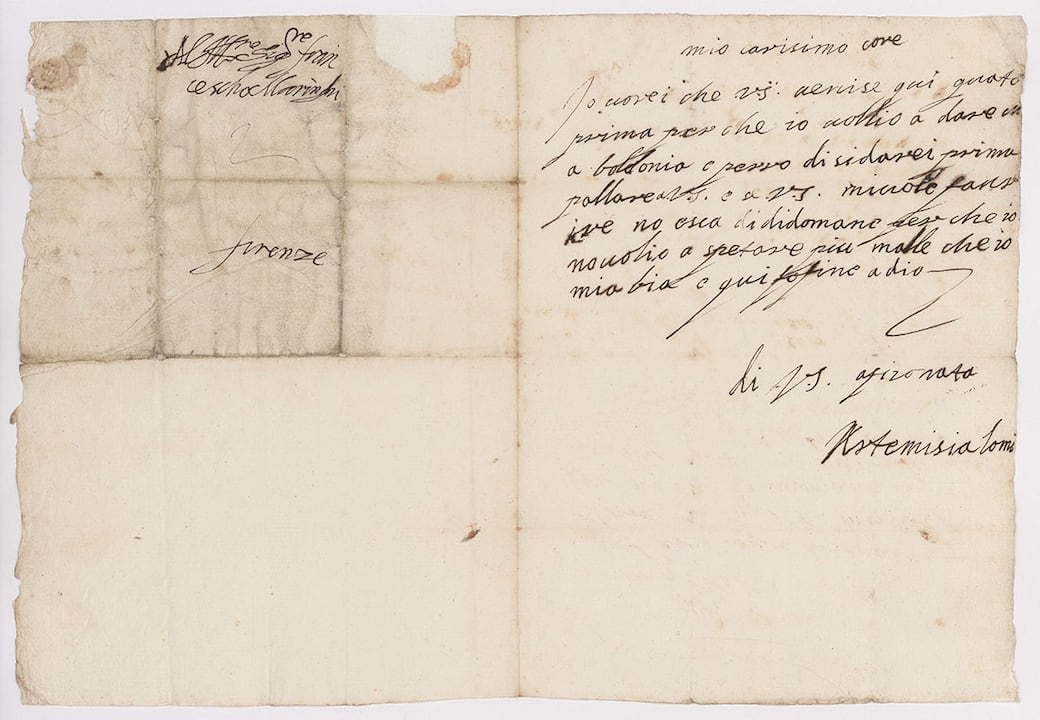 Al Sig.re fran
cescho Maringhi
firenze
mio carisimo core
Io vorei che V.S. venise qui quato
prima per che io vollio a dare
a bollonia e perro disidarei prima
parlare a V.S. e a V.S.
no esca didomane per che io
no volio a spetare piu malle che io
mia bia e qui fo fine adio
di V.S. afizonata
Artemisia lomi